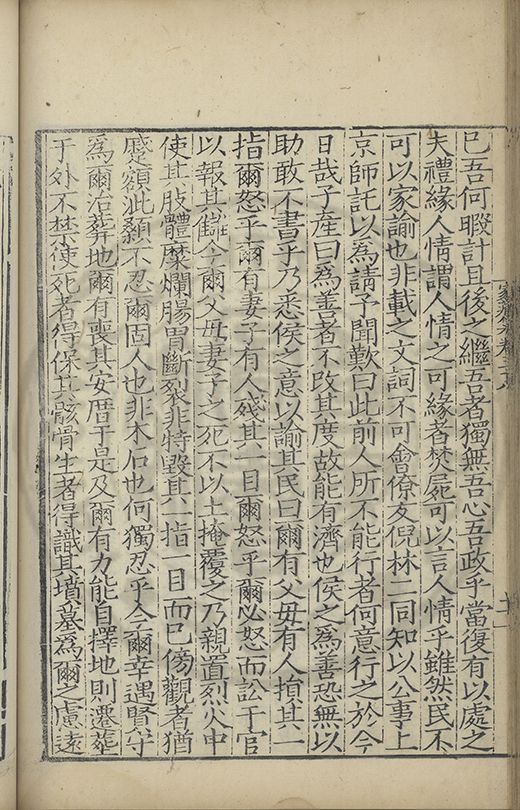 已吾何暇計且後之繼吾者獨無吾心吾政乎當復有以處之
夫禮緣人情謂人情之可緣者焚屍可以言人情乎雖然民不
可以家諭也非載之文詞不可會僚友倪林二同知以公事上
京師託以為請予聞歎曰此前人所不能行者何意行之於今
日哉子產曰為善者不改其度故能有濟也侯之為善恐無以
助敢不書乎乃悉侯之意以諭其民曰爾有父毋有人損其一
指爾怒乎爾有妻子有人殘其一目爾怒乎爾必怒而訟于官
以報其讎今爾父毋妻子之死不以土掩覆之乃親置烈火中
使其肢體糜爛腸胃斷裂非特毀其一指一目而已傍觀者猶
蹙額泚顙不忍爾固人也非木石也何獨忍乎今爾幸遇賢守
為爾治葬地爾有喪其安厝于是及爾有力能自擇地則遷葬
于外不禁使死者得保其骸骨生者得識其墳墓為爾之慮遠